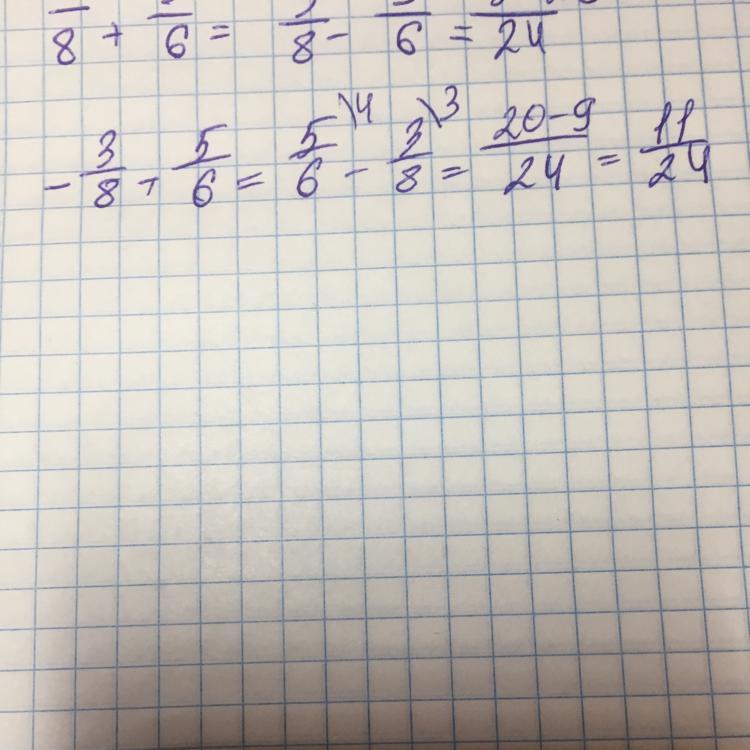 8 + 6 = 8 - 6 = 24
- 3/8 + 5/6 = 5/6 \4 - 3/8 \3 = 20-9/24 = 11/24